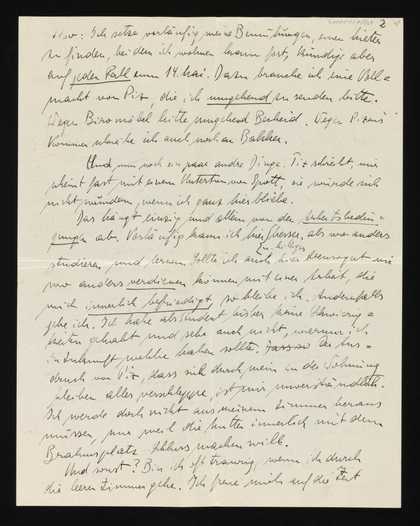 2
Also: Ich setze vorläufig meine Bemühungen, einen Mieter
zu finden, bei dem ich wohnen kann fort, kündige aber
auf jeden Fall zum 14. Mai. Dazu brauche ich eine Voll-
macht von Pix, die ich umgehend zu senden bitte.
Wegen Büromöbel bitte umgehend Bescheid. Wegen
kommen schreibe ich auch noch an
Und nun noch ein paar andre Dinge. schreibt, mir
scheint fast mit einem Unterton von Spott, sie würde sich
nicht wundern, wenn ich ganz hier bliebe.
Das hängt einzig und allein von den Arbeitsbedin-
gungen ab. Vorläufig kann ich hier besser, als wo anders
studieren und lernen. Sollte ich auch hier
wo anders verdienen können mit einer Arbeit, die
mich innerlich befriedigt, so bleibe ich. Andernfalls
gehe ich. Ich habe als Student bisher keine Schwierig-
keiten gehabt und sehe auch nicht, warum ich
in Zukunft welche haben sollte. Der Aus-
druck von Pix, dass sich durch mein in der Wohnung
bleiben alles verschleppe, ist mir unverständlich.
Ich werde doch nicht aus meinem Zimmer heraus
müssen, nur weil die Mutter innerlich mit dem
Brahmsplatz Schluss machen will.
Und sonst? Bin ich oft traurig, wenn ich durch
die leeren Zimmer gehe. Ich freue mich auf die Zeit